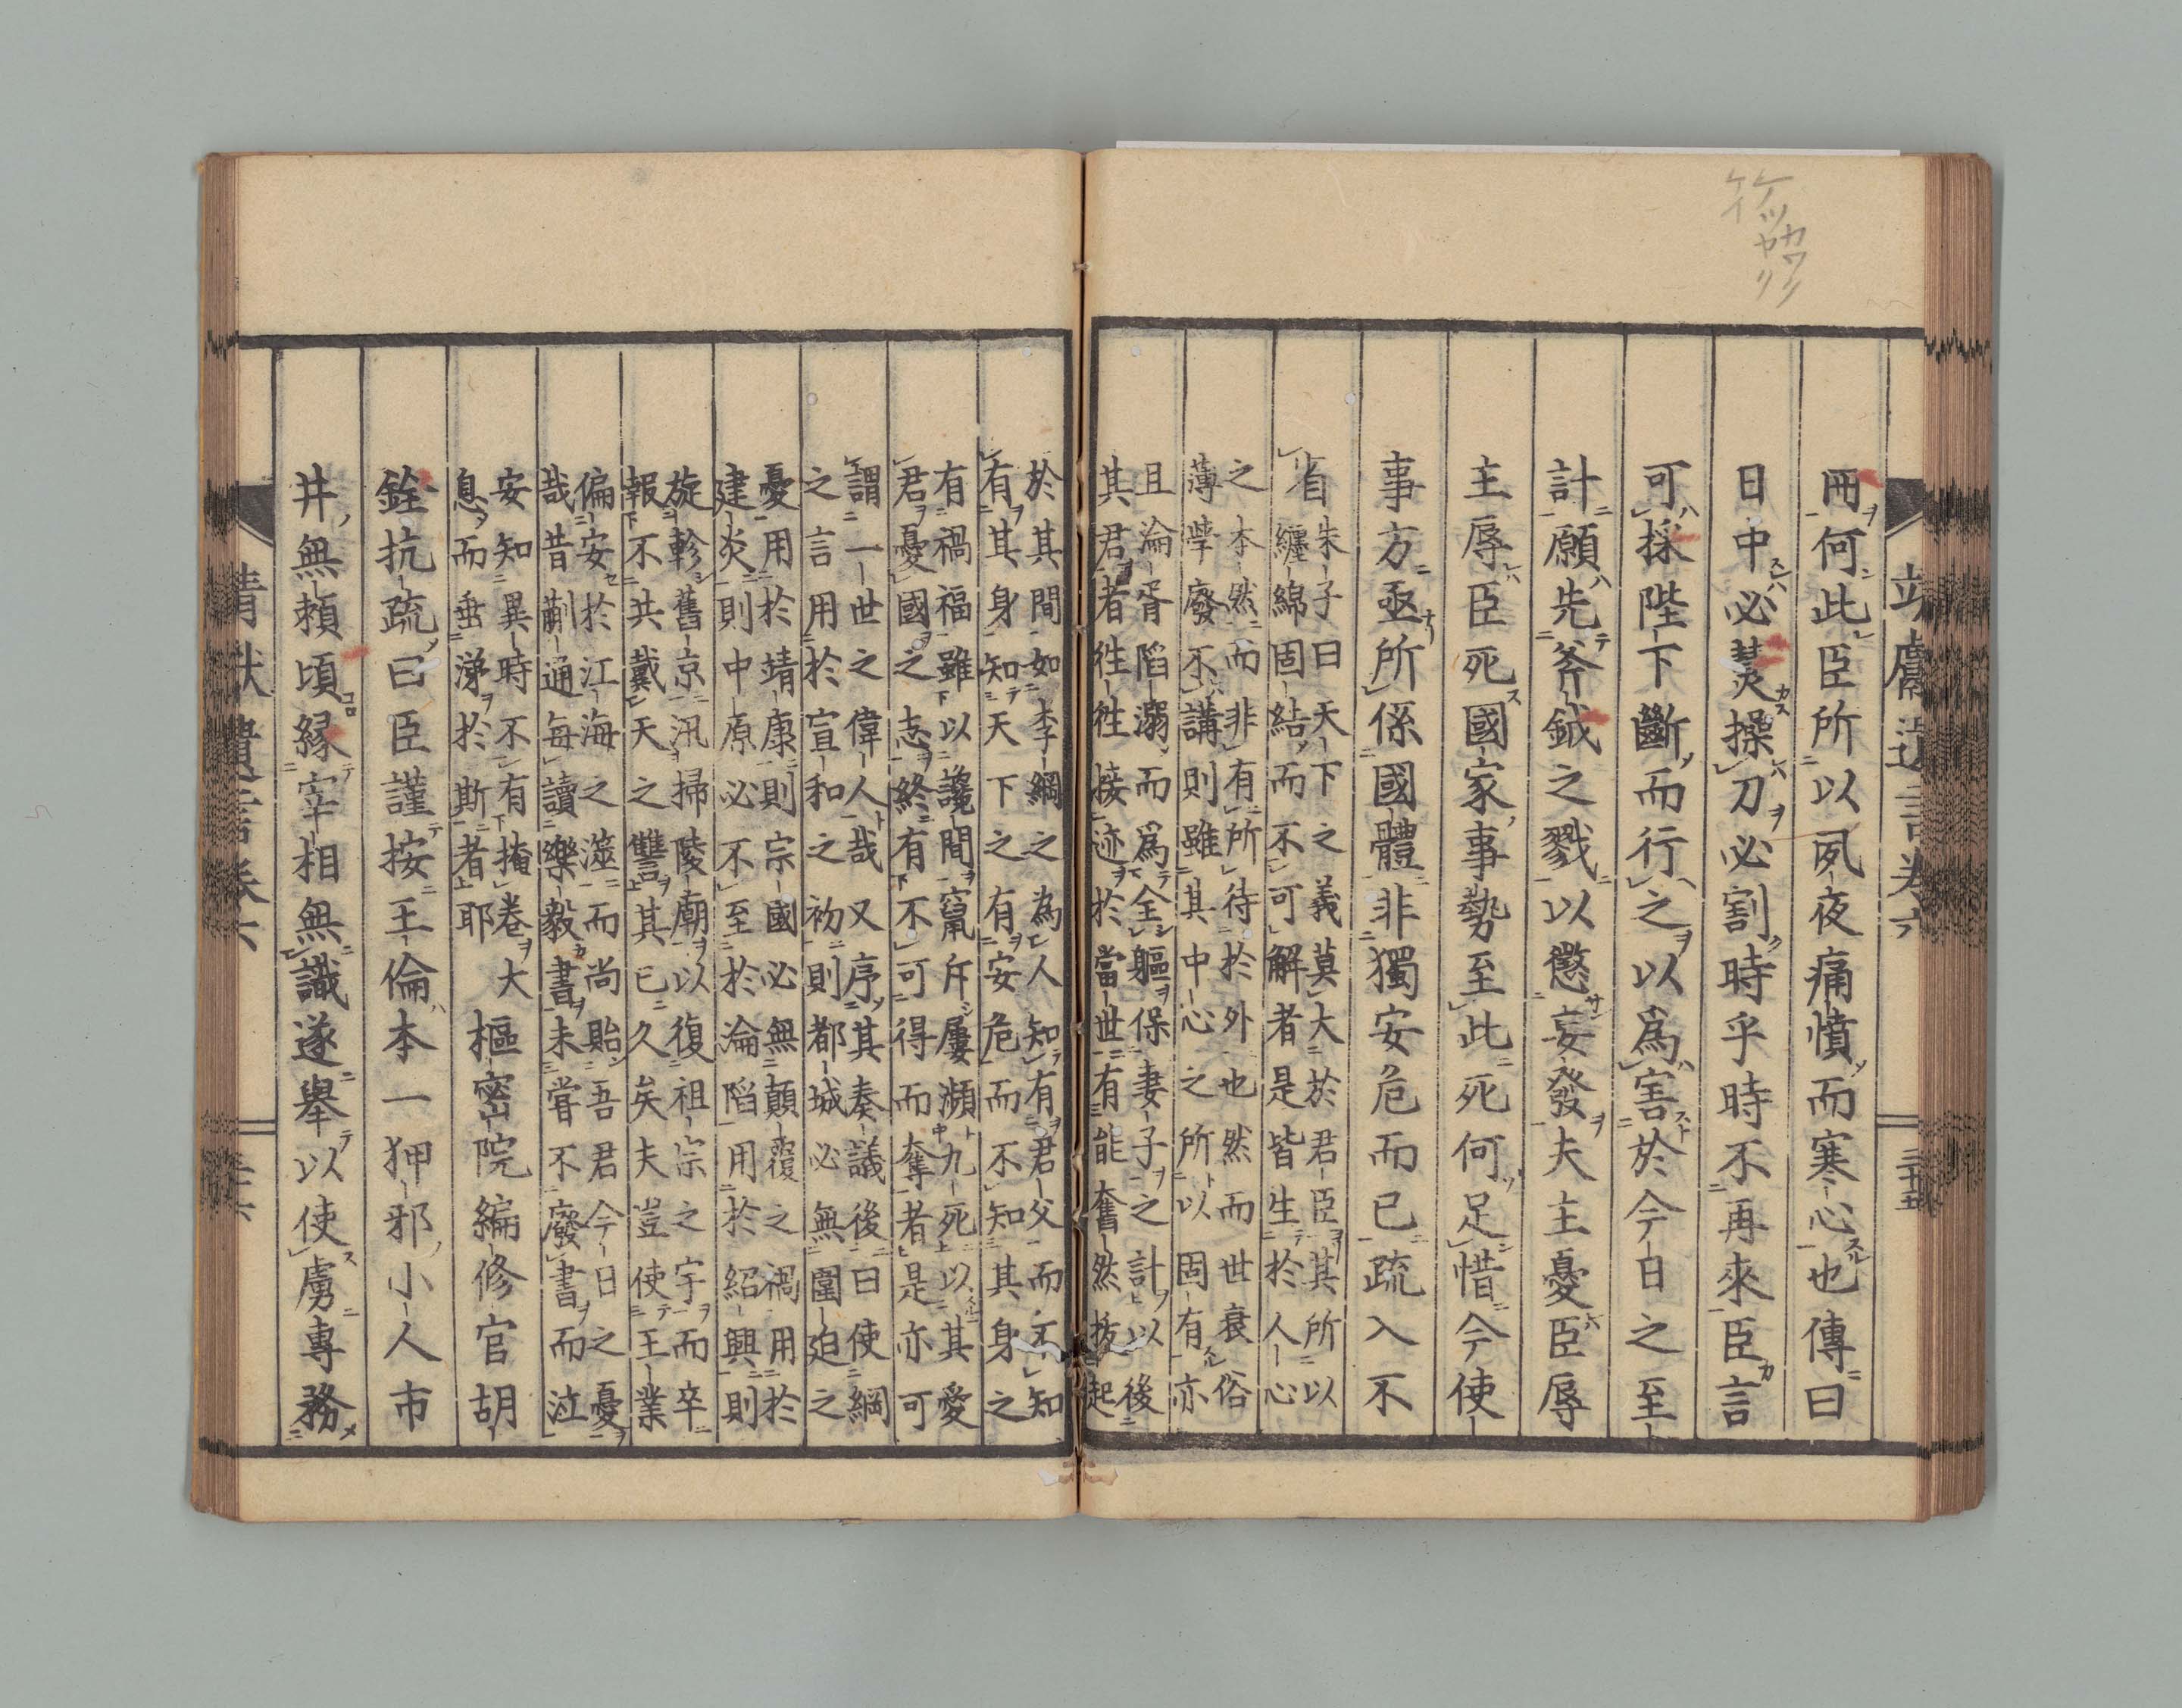 兩何此臣所以夙夜痛憤而寒心也傳曰
日中必熭操刀必割時乎時不再來臣言
可採陛下斷而行之以爲害於今日之至
計願先斧鉞之戮以懲妄發夫主憂臣辱
主辱臣死國家事勢至此死何足惜今使
事方亟所係國體非獨安危而已疏入不
省
朱子曰天下之義莫大於君臣其所以
纏綿固結而不可解者是皆生於人心
之本然而非有所待於外也然而世衰俗
薄學廢不講則雖其中心之所以固有亦
且淪胥陷溺而爲全軀保妻子之計以後
其君者徃徃接迹於當世有能奮然拔起
於其間如李綱之為人知有君父而不知
有其身知天下之有安危而不知其身之
有禍福雖以讒間竄斥屢瀕九死以其愛
君憂國之志終有不可得而奪者是亦可
謂一世之偉人哉又序其奏議後曰使綱
之言用於宣和之初則都城必無圍迫之
憂用於靖康則宗國必無顛覆之禍用於
建炎則中原必不至於淪陷用於紹興則
旋軫舊京汛掃陵廟以復祖宗之宇而卒
報不共戴天之讐其已久矣夫豈使王業
偏安於江海之澨而尚貽吾君今日之憂
哉昔蒯通每讀樂毅書未嘗不廢書而泣
安知異時不有掩卷大
息而垂涕於斯者耶
樞密院編修官胡
銓抗疏曰臣謹按王倫本一狎邪小人市
井無頼頃縁宰相無識遂舉以使虜專務